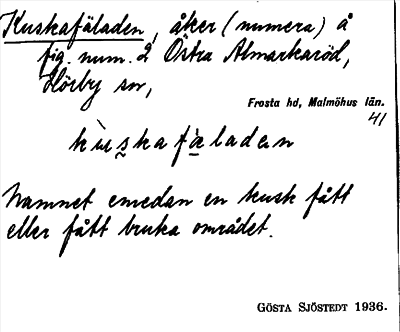 Kuskafäladen, åker (numera) å
fig. num. 2 Östra Almarkaröd,
Hörby sn,
Frosta hd, Malmöhus län.
41
kùskafàladen
Namnet emedan en kusk fått
eller fått bruka området.
GÖSTA SJÖSTEDT 1936.